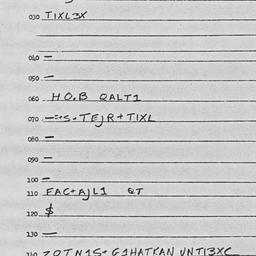 030 TIXL3X
040 —
050 —
060 H.O.B QALT1
070 S-TEJR+TIXL
080 —
090 —
100 —
110 FAC+AJL1 QT
120 $
130 —